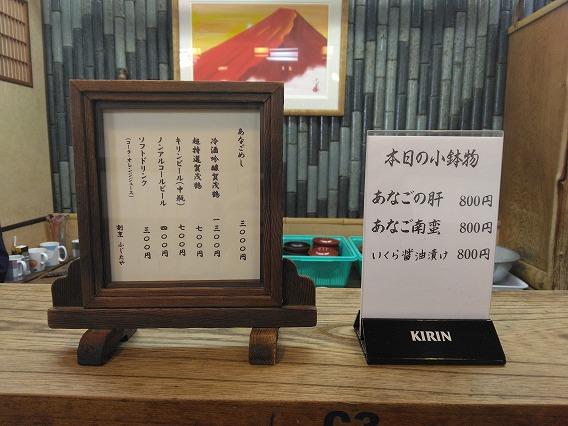 あなごめし 三〇〇〇円
冷酒吟醸賀茂鶴 一三〇〇円
超特選賀茂鶴 七〇〇円
キリンビール(中瓶) 七〇〇円
ノンアルコールビール 四〇〇円
ソフトドリンク 三〇〇円
(コーラ・オレンジジュース)
割烹 ふじたや
本日の小鉢物
あなごの肝 800円
あなご南蛮 800円
いくら醤油漬け 800円
KIRIN